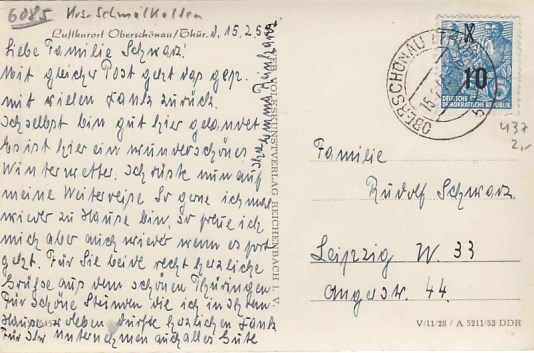 6085 Krs. Schmalkalden
Luftkurort Oberschönau/Thür. d. 15.2.5
Liebe Familie Schwarz!
Mit gleicher Post geht das gep.
mit vielen Dank zurück.
Ich selbst bin gut hier gelandet
Es ist hier ein wunderschönes
Winterwetter. Ich rüste nun auf
meine Weiterreise So gerne ich mal
wieder zu Hause bin, so freue ich
mich aber auch wieder wenn es fort
geht. Für Sie beide recht herzliche
Grüße aus dem schönen Thüringen
Für schöne Stunden die ich in Ihrem
Hause erleben durfte herzlichen Dank
Für Ihr Unternehmen auch alles Gute
Ihre
VEB VOLKSKUNSTVERLAG REICHENBACH I. V.
OBERSCHÖNAU (THÜR)
15
X
10
DEUTSCHE
DEMOKRATISCHE REPUBLIK
437
2,-
Familie
Rudolf Schwarz
Leipzig W. 33
Angerstr. 44.
V/11/28 / A 5211/53/DDR